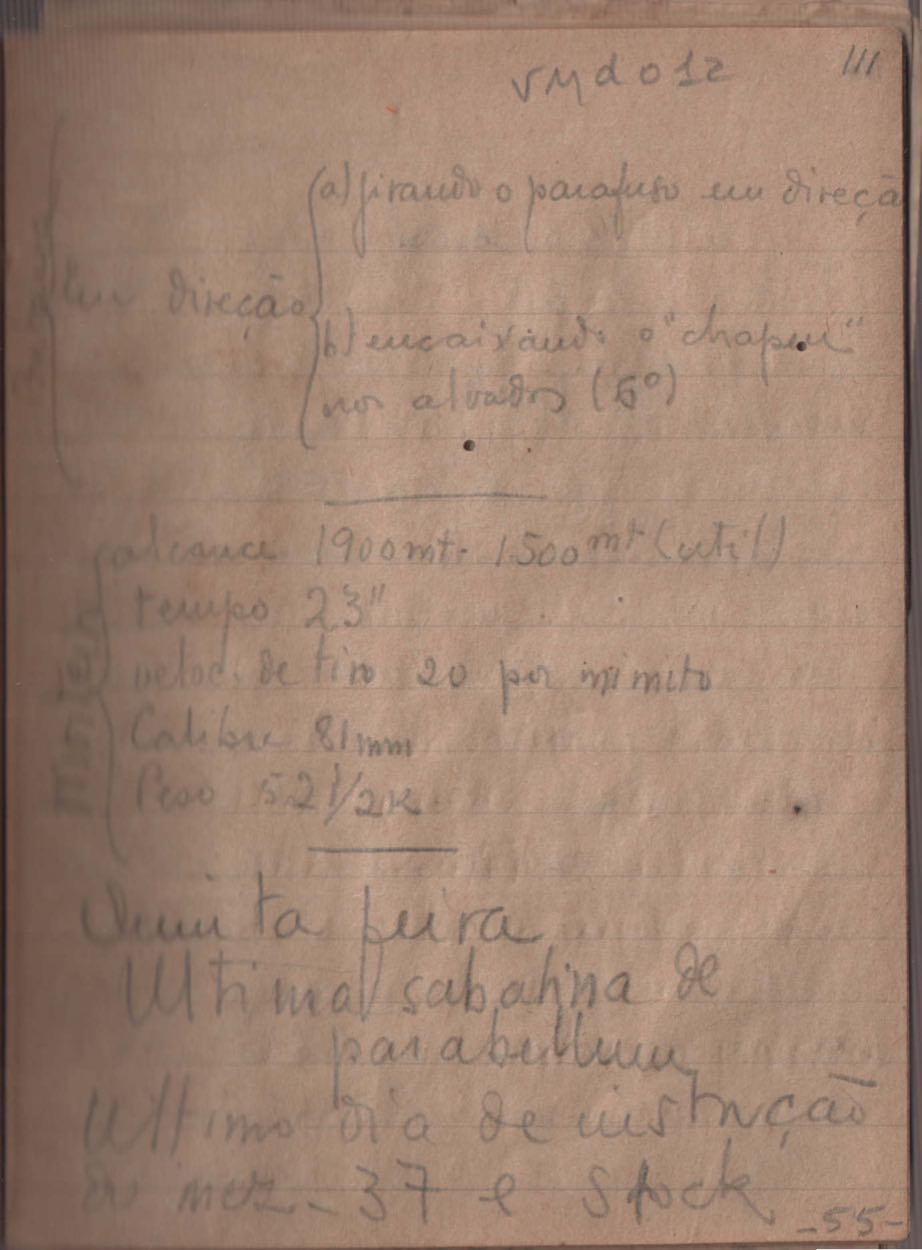 VMdo12
111
a) girando o parafuso em direçã
em direção
b) encaixando o "chapeu"
nos alvados (6º)
alcance 1900mt. 1500mt (util)
tempo 23"
veloc. de tiro 20 por minuto
Calibre 81mm
Peso 52 1/2K
Quinta feira
Ultima sabatina de
parabellum
Ultimo dia de instrução
37 e Stock
-55-